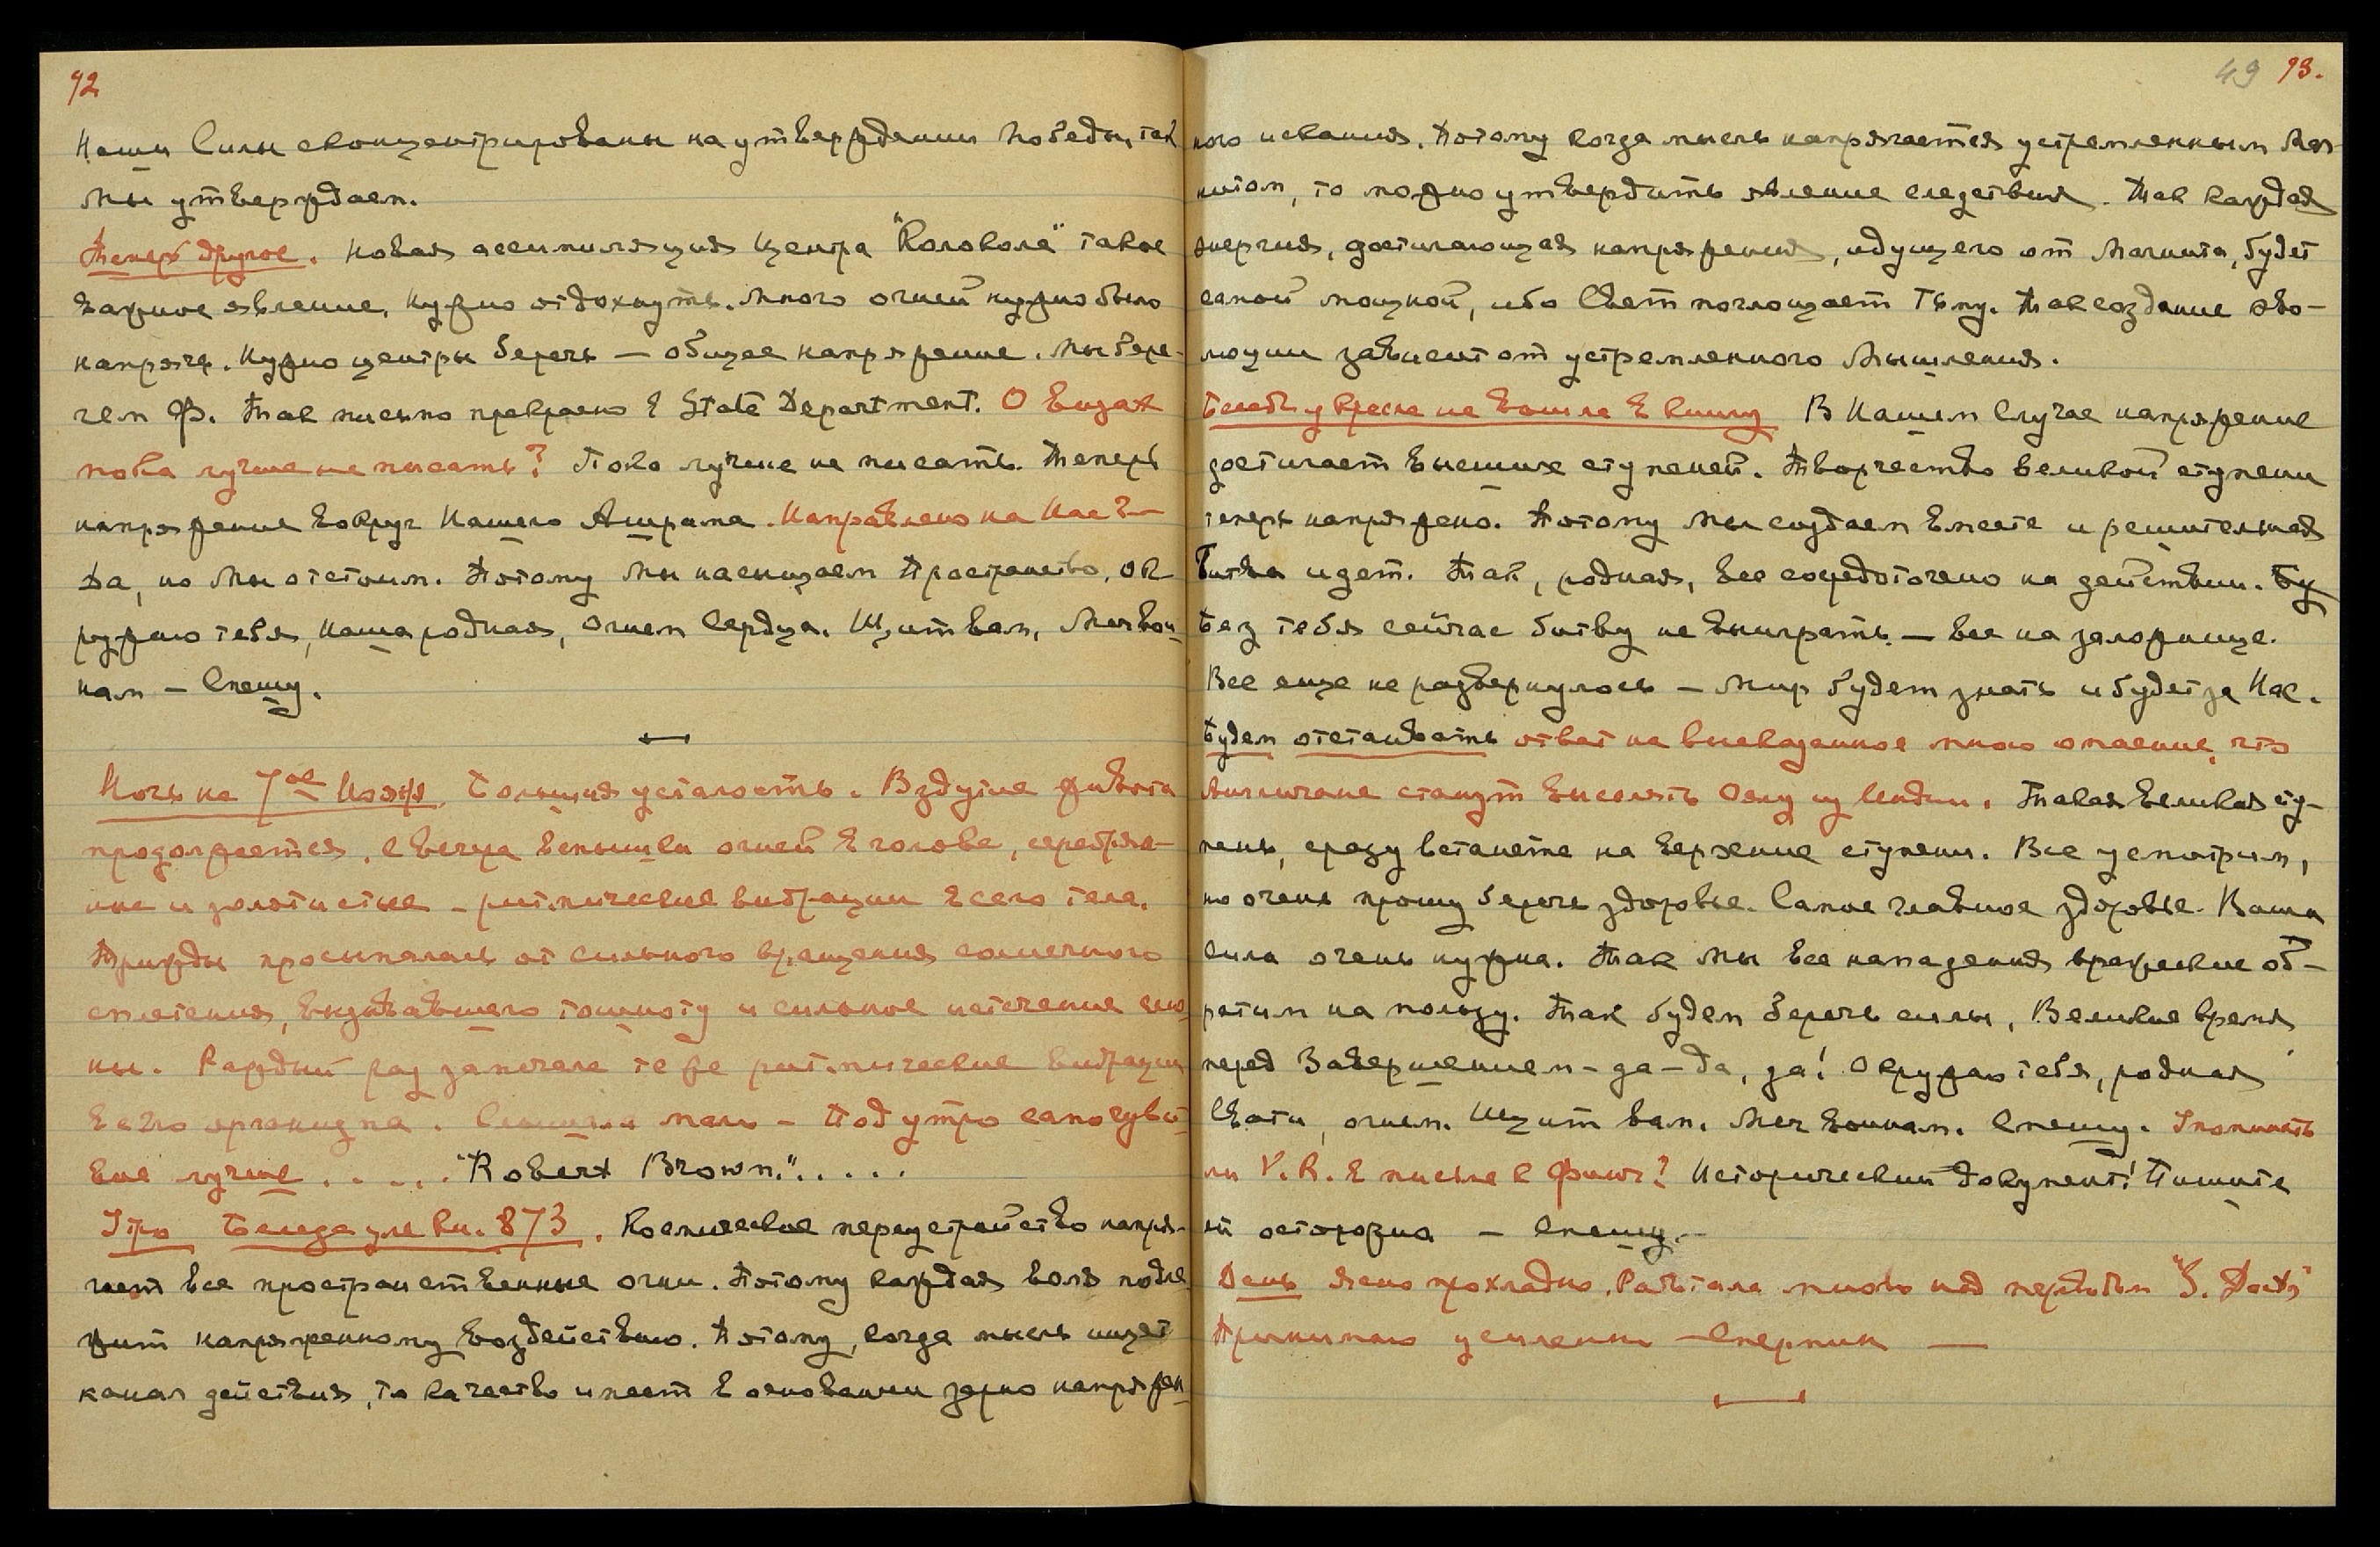 92
Наши Силы сконцентрированы на утверждении Победы, так
Мы утверждаем.
Теперь другое. Новая ассимиляция Центра "Колокола" такое
важное явление. Нужно отдохнуть. Много огней нужно было
напрячь. Нужно центры беречь — общее напряжение. Мы бере-
жем Ф. Так письмо прекрасно в State Department. О визах
пока лучше не писать? Пока лучше не писать. Теперь
напряжение вокруг Нашего Ашрама. Направлено на Нас? —
Да, но Мы отстоим. Потому Мы насыщаем Пространство. Ок-
ружаю тебя, Наша родная, Огнем Сердца. Щит вам, Меч вои-
нам — Спешу.
Ночь на 7ое Июня. Большая усталость. Вздутие живота
продолжается. С вечера вспышки огней в голове, серебря-
ные и золотистые — ритмические вибрации всего тела.
Трижды просыпалась от сильного вращения солнечного
сплетения, вызвавшего тошноту и сильное истечение слю-
ны. Каждый раз замечала те же ритмические вибрации
всего организма. Слышала мало — Под утро самочувст-
вие лучше . . . . . "Robert Brown." . . . . .
Утро Беседа уже Кн. 873. Космическое переустройство напря-
гает все пространственные огни. Потому каждая воля подле-
жит напряженному воздействию. Потому, когда мысль ищет
канал действия, то качество имеет в основании зерно напряжен-
49 93.
ного искания. Потому когда мысль напрягается устремленным Маг-
нитом, то можно утвердить явление следствия. Так каждая
энергия, достигающая напряжения, идущего от Магнита, будет
самой мощной, ибо Свет поглощает Тьму. Так создание эво-
люции зависит от устремленного Мышления.
Беседа у кресла не вошла в книгу В Нашем Случае напряжение
достигает высших ступеней. Творчество великой ступени
теперь напряжено. Потому Мы создаем вместе и решительная
Битва идет. Так, родная, все сосредоточено на действии.
Без тебя сейчас битву не выиграть — все на заложнице.
Все еще не развернулось — Мир будет знать и будет за Нас.
Будем отстаивать ответ на высказанное мною опасение, что
Англичане станут выселять Ояну из Индии. Такая великая сту-
пень, сразу встанете на верхние ступени. Все усмотрим,
но очень прошу беречь здоровье. Самое главное здоровье. Ваша
сила очень нужна. Так Мы все нападения вражеские об-
ратим на пользу. Так будем беречь силы, Великое время
перед Завершением — да — да, да! Окружаю тебя, родная
Свати, огнем. Щит вам. Меч воинам. Спешу. Упоминать
ли V.R. в письме к Фишт? Исторический Документ! Пишите
ей осторожно — Спешу. —
День Ясно прохладно. Работала много над
Принимаю усиленно — Спермин —